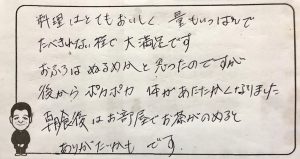 料理はとてもおいしく 量もいっぱいで
たべきれない程で大満足です
おふろはぬるめかと思ったのですが
後からポカポカ 体があたたかくなりました
朝食後はお部屋でお茶がのめると
ありがたいかも です